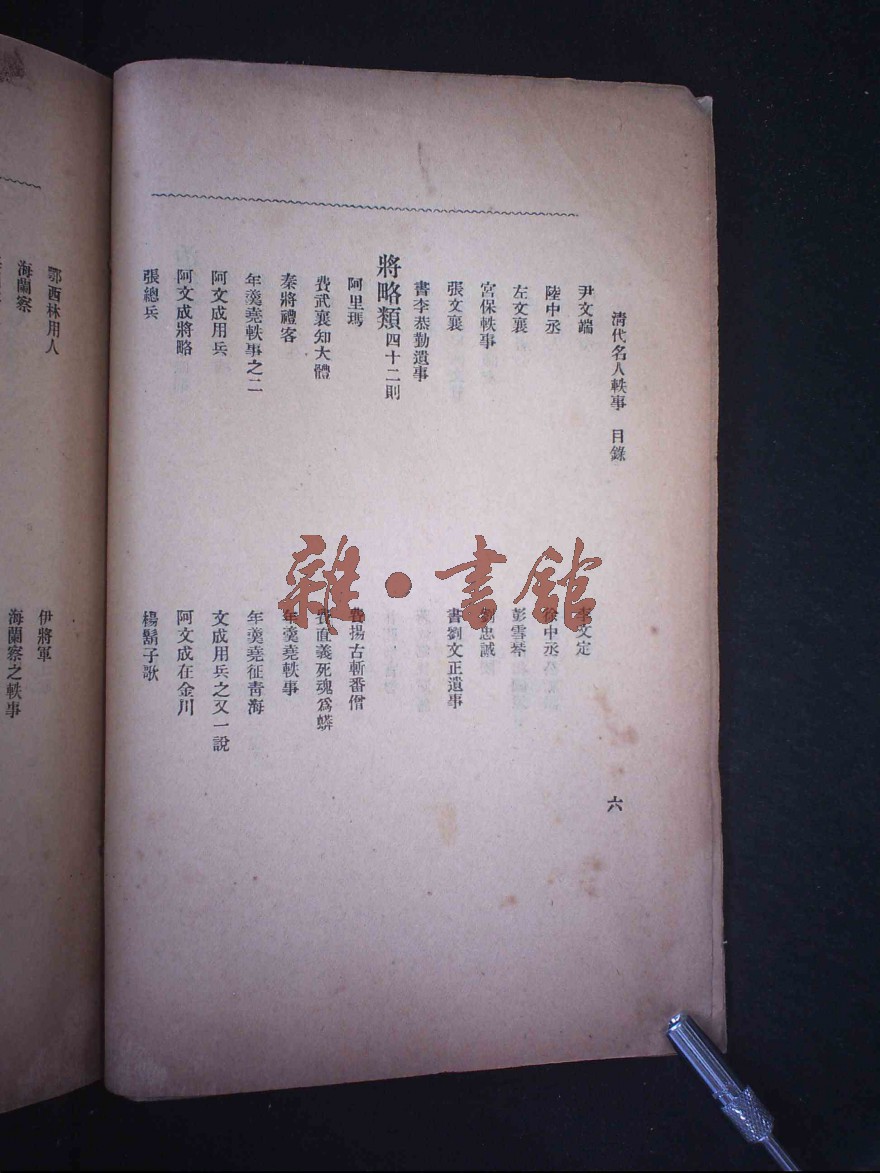 清代名人軼事 目錄 六
尹文端 李文定
陸中丞 徐中丞
左文襄 彭雪琴
宮保軼事 劉忠誠
張文襄 書劉文正遺事
書李恭勤遺事
將略類四十二則
阿里瑪 費揚古斬番僧
費武襄知大體 費直義死魂爲蟒
秦將禮客 年羹堯軼事
年羹堯軼事之二 年羹堯征靑海
阿文成用兵 文成用兵之又一說
阿文成將略 阿文成在金川
張總兵 楊鬍子歌
鄂西林用人 伊將軍
海蘭察 海蘭察之軼事
雜·書館